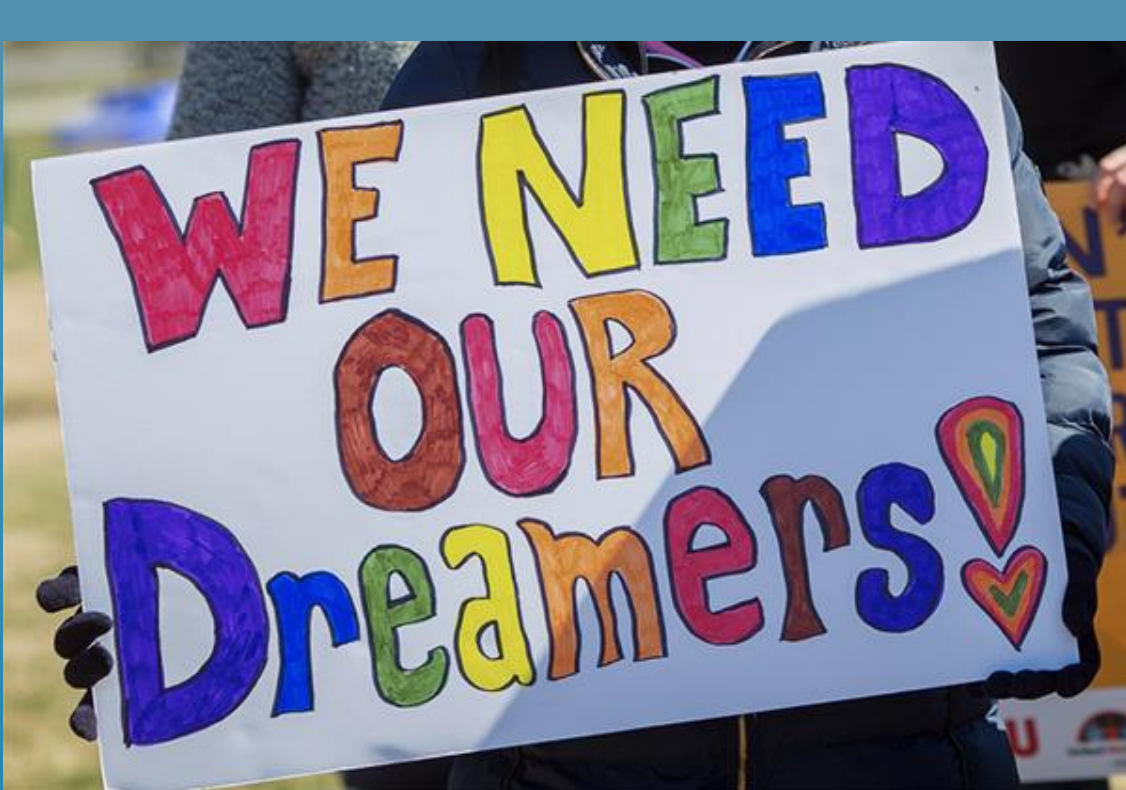 WE NEED
OUR
Dreamers!
N
T
U